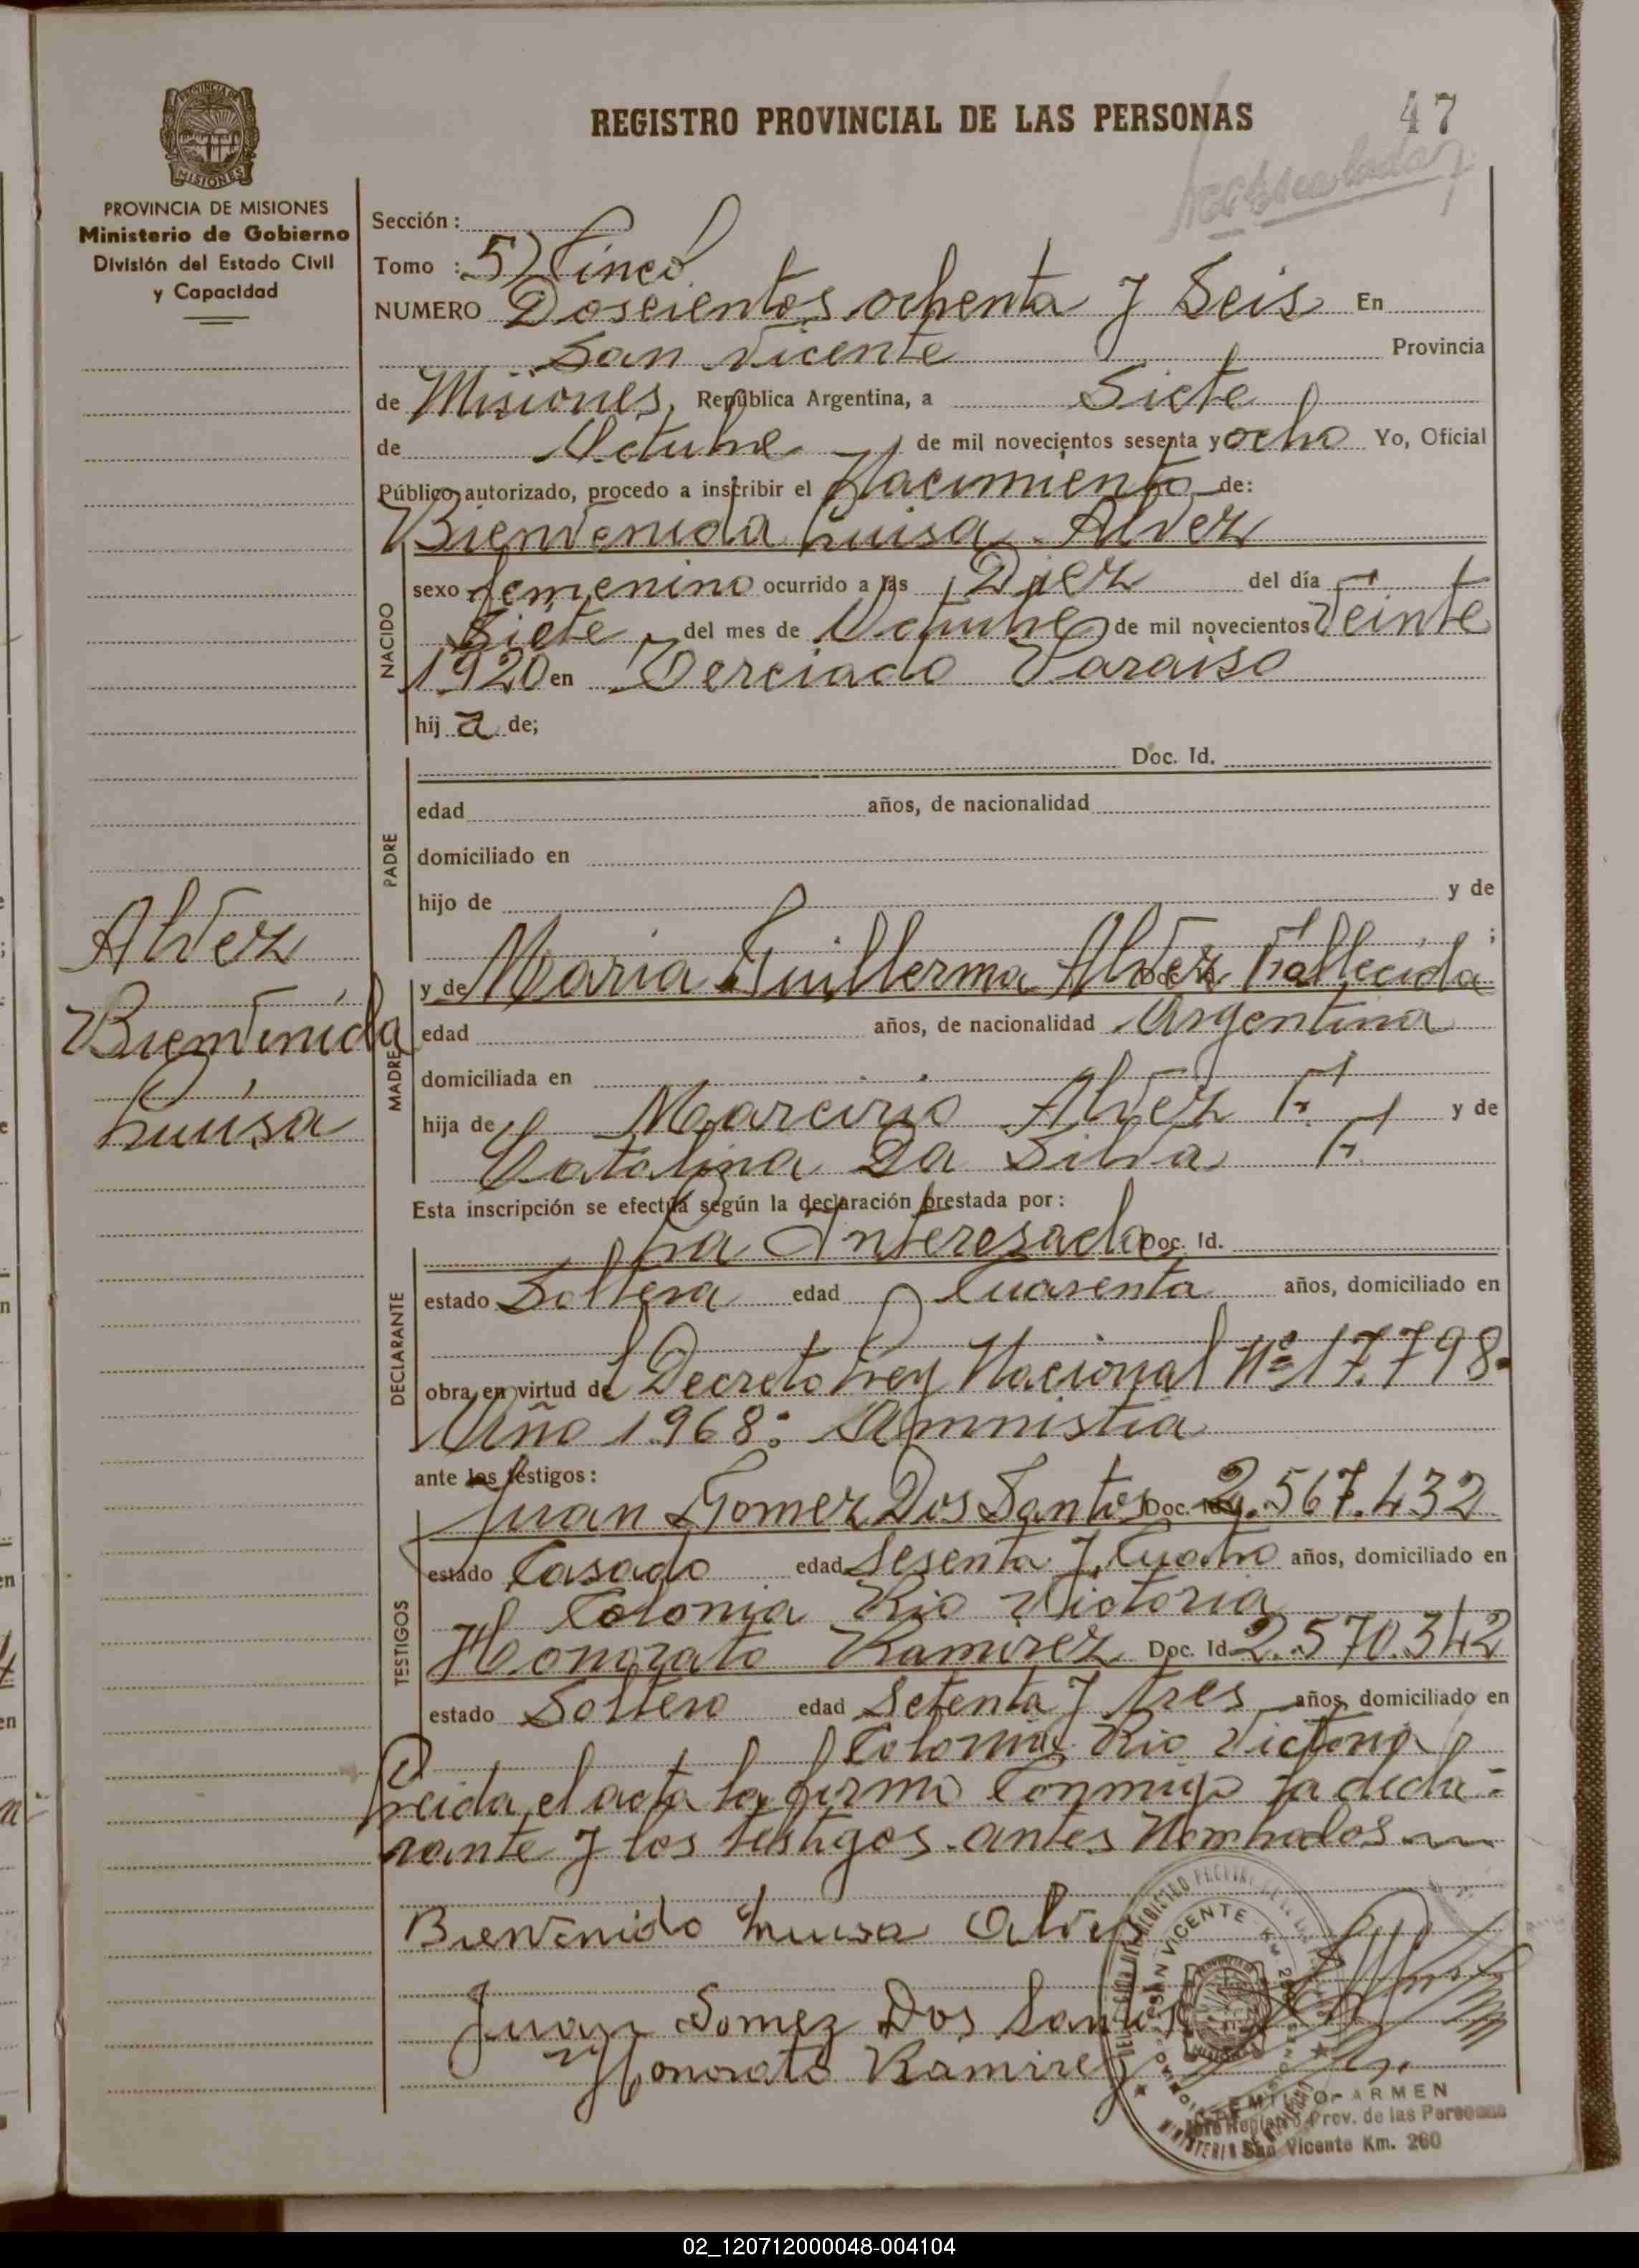 REGISTRO PROVINCIAL DE LAS PERSONAS
47
PROVINCIA DE
MISIONES
PROVINCIA DE MISIONES
Ministerio de Gobierno
División del Estado Civil
y Capacidad
Sección :
Tomo : 5) Cinco
NUMERO Doscientos ochenta y Seis En
San Vicente Provincia
de Misiones, República Argentina, a Siete
de Octubre de mil novecientos sesenta y ocho Yo, Oficial
Público autorizado, procedo a inscribir el Nacimiento de:
Bienvenida Luisa Alvez
NACIDO
sexo femenino ocurrido a las Diez del día
Siete del mes de Octubre de mil novecientos Veinte
1920 en Terciado Paraiso
hij a de;
PADRE
Doc. Id.
edad años, de nacionalidad
domiciliado en
hijo de y de
;
Alvez
Bienvenida
Luisa
MADRE
y de Maria Guillerma Alvez Fallecida
edad años, de nacionalidad Argentina
domiciliada en
hija de Marcirio Alvez F. y de
Catalina Da Silva F.
Esta inscripción se efectúa según la declaración prestada por :
DECLARANTE
La Interesada Doc. Id.
estado Soltera edad Cuarenta años, domiciliado en
obra en virtud de Decreto Ley Nacional Nº 17.798.
Año 1968: Amnistia
ante los testigos :
TESTIGOS
Juan Gomez Dos Santos Doc. Id. 2.567.432
estado Casado edad Sesenta y Cuatro años, domiciliado en
Colonia Rio Victoria
Honorato Ramirez Doc. Id. 2.570.342
estado Soltero edad Setenta y tres años, domiciliado en
Colonia Rio Victoria
Leida el acta la firma Conmigo la decla=
rante y los testigos antes Nombrados
Bienvenido Luisa Alvez
Juan Gomez Dos Santos
Honorato Ramirez
SAN VICENTE
ARMEN
Registro Prov. de las Personas
San Vicente Km. 260
02_120712000048-004104